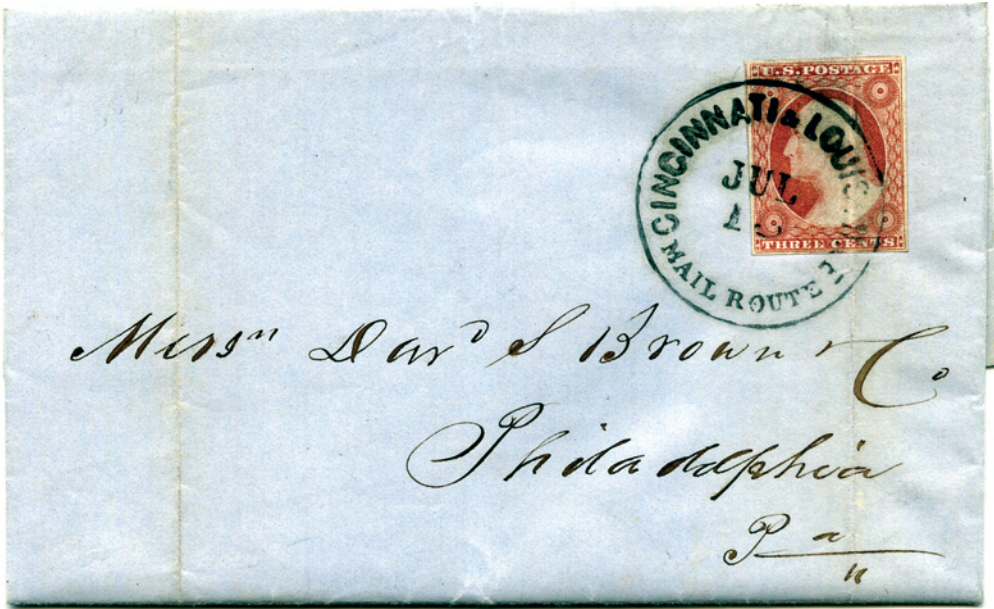 U.S. POSTAGE
THREE CENTS
CINCINNATI & LOUIS
JUL
MAIL ROUTE
Messrs Davd S Brown & Co
Philadelphia
Pa